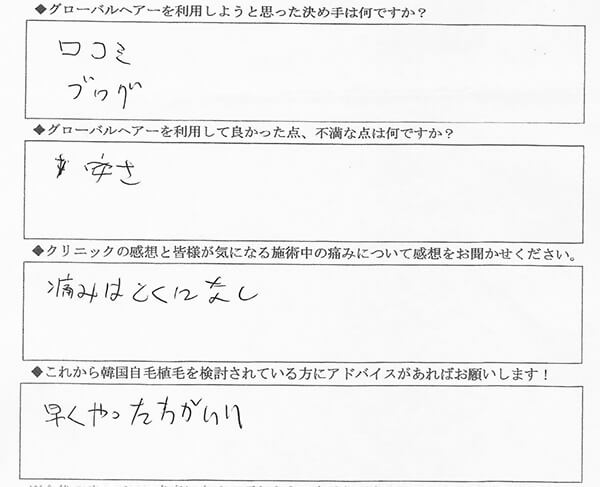 ◆グローバルヘアーを利用しようと思った決め手は何ですか？
口コミ
ブログ
◆グローバルヘアーを利用して良かった点、不満な点は何ですか？
安さ
◆クリニックの感想と皆様が気になる施術中の痛みについて感想をお聞かせください。
痛みはとくになし
◆これから韓国自毛植毛を検討されている方にアドバイスがあればお願いします！
早くやった方がいい